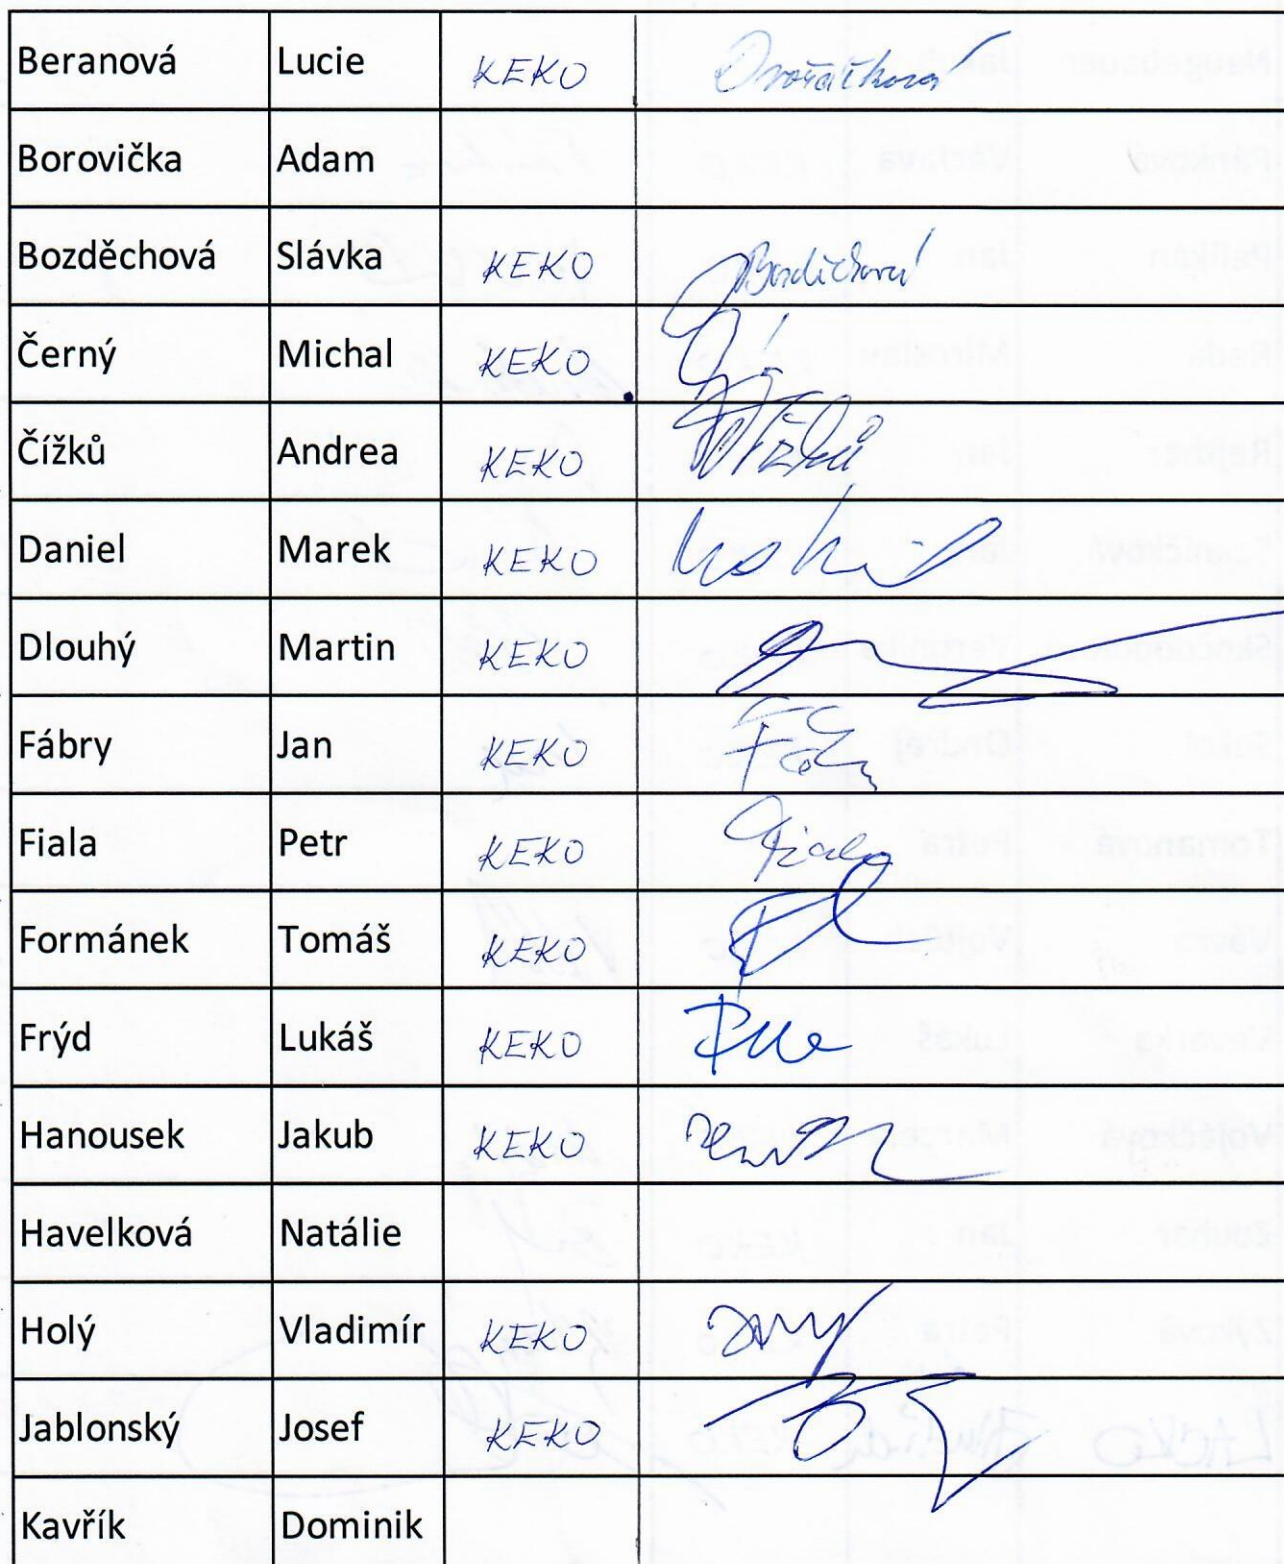 Beranová Lucie KEKO Dvořáčková
Borovička Adam
Bozděchová Slávka KEKO Bozděchová
Černý Michal KEKO
Čížků Andrea KEKO Čížků
Daniel Marek KEKO
Dlouhý Martin KEKO
Fábry Jan KEKO
Fiala Petr KEKO Fiala
Formánek Tomáš KEKO
Frýd Lukáš KEKO
Hanousek Jakub KEKO
Havelková Natálie
Holý Vladimír KEKO
Jablonský Josef KEKO
Kavřík Dominik